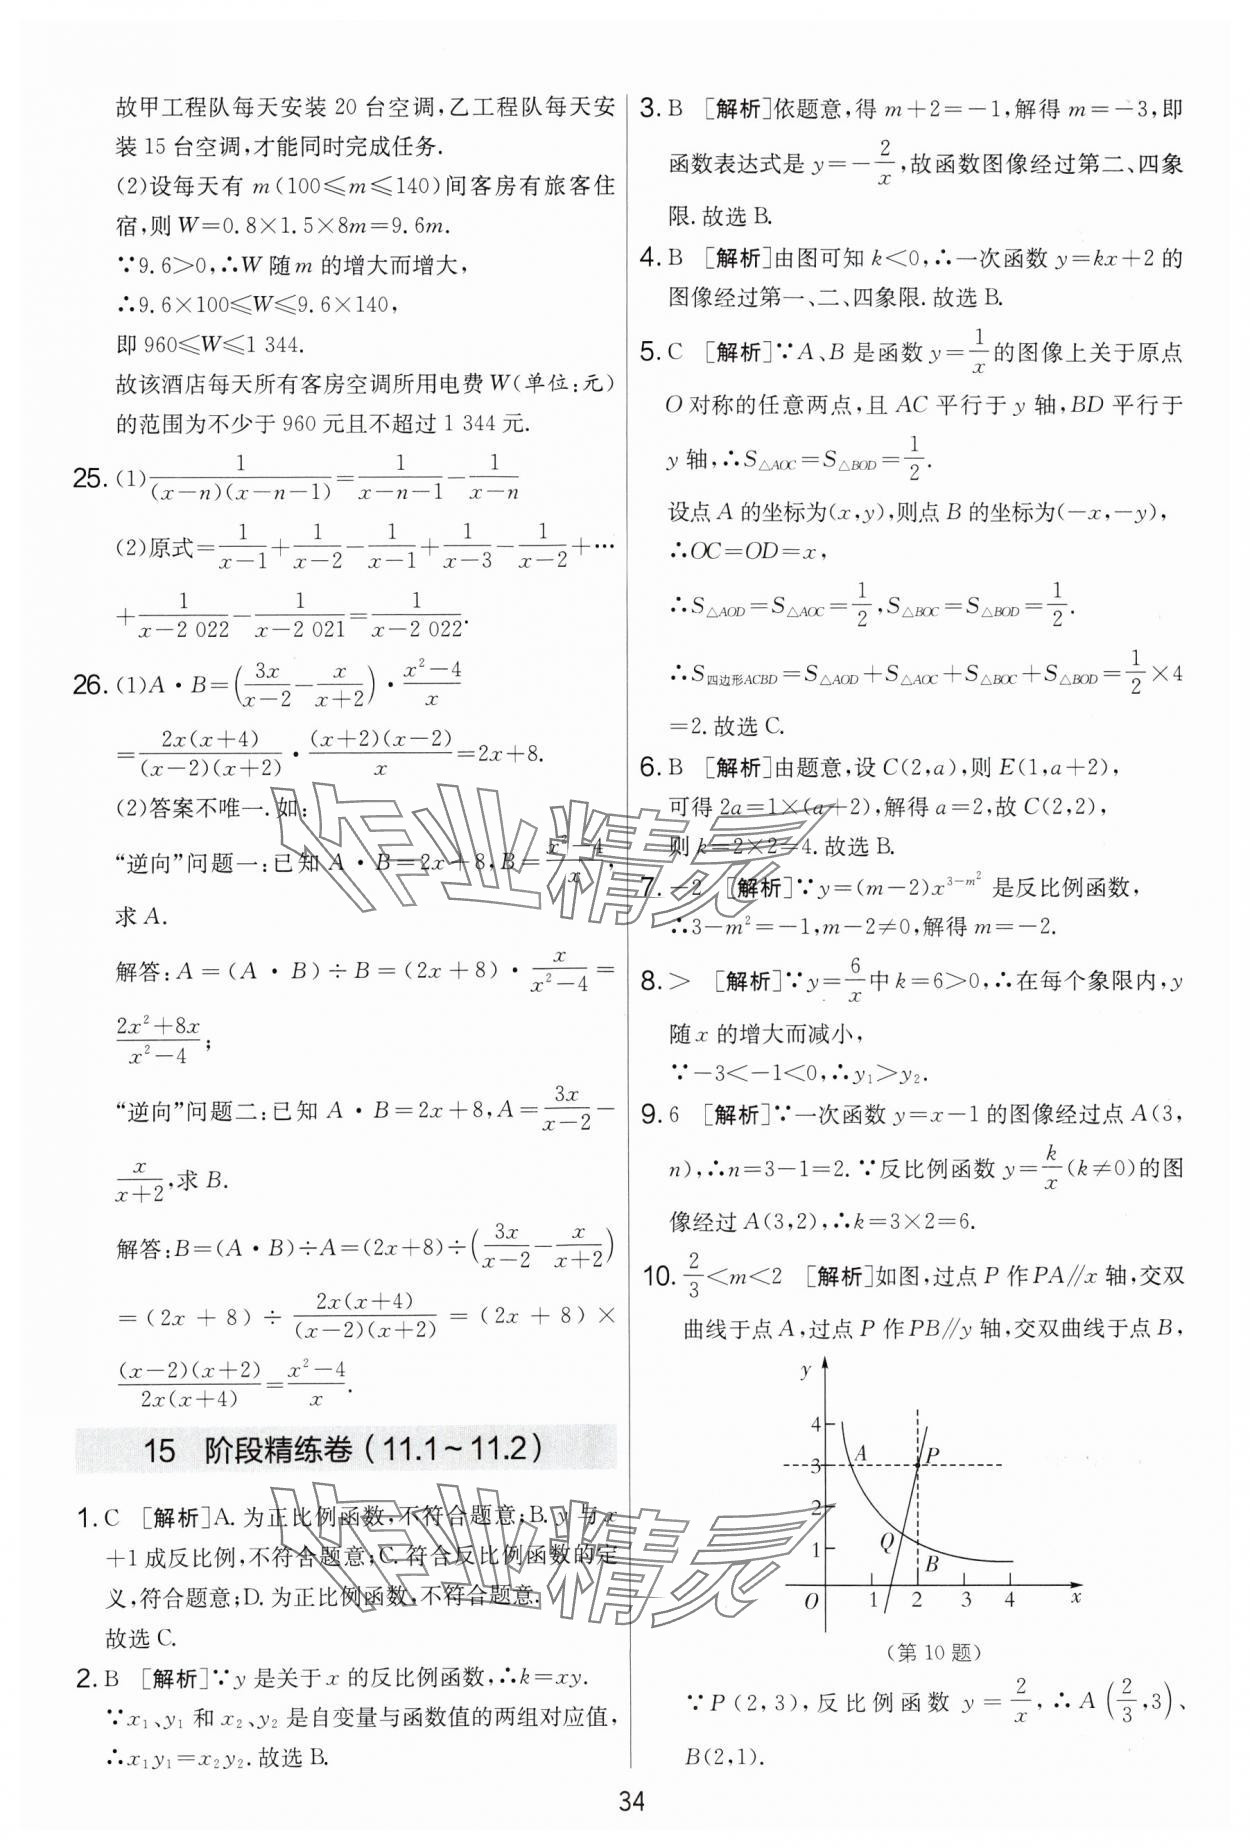 故甲工程队每天安装 20 台空调,乙工程队每天安
装 15 台空调,才能同时完成任务.
(2)设每天有 m(100≤m≤140)间客房有旅客住
宿,则 W=0.8×1.5×8m=9.6m.
∵9.6>0,∴W 随 m 的增大而增大,
∴9.6×100≤W≤9.6×140,
即 960≤W≤1 344.
故该酒店每天所有客房空调所用电费 W(单位:元)
的范围为不少于 960 元且不超过 1 344 元.
25. (1) 1/((x-n)(x-n-1)) = 1/(x-n-1) - 1/(x-n)
(2)原式= 1/(x-1) + 1/(x-2) - 1/(x-1) + 1/(x-3) - 1/(x-2) + ⋯
+ 1/(x-2 022) - 1/(x-2 021) = 1/(x-2 022).
26. (1)A·B=(3x/(x-2) - x/(x+2))·(x²-4)/x
= 2x(x+4)/((x-2)(x+2)) · (x+2)(x-2)/x =2x+8.
(2)答案不唯一.如:
“逆向”问题一:已知 A·B=2x+8,B=(x²-4)/x,
求 A.
解答:A=(A·B)÷B=(2x+8)·x/(x²-4)=
(2x²+8x)/(x²-4);
“逆向”问题二:已知 A·B=2x+8,A=3x/(x-2) -
x/(x+2),求 B.
解答:B=(A·B)÷A=(2x+8)÷(3x/(x-2) - x/(x+2))
=(2x+8)÷ 2x(x+4)/((x-2)(x+2)) =(2x+8)×
(x-2)(x+2)/(2x(x+4)) = (x²-4)/x.
15 阶段精练卷(11.1~11.2)
1. C [解析]A.为正比例函数,不符合题意;B.y 与 x
+1 成反比例,不符合题意;C.符合反比例函数的定
义,符合题意;D.为正比例函数,不符合题意.
故选 C.
2. B [解析]∵y 是关于 x 的反比例函数,∴k=xy.
∵x₁、y₁ 和 x₂、y₂ 是自变量与函数值的两组对应值,
∴x₁y₁=x₂y₂.故选 B.
3. B [解析]依题意,得 m+2=-1,解得 m=-3,即
函数表达式是 y=-2/x,故函数图像经过第二、四象
限.故选 B.
4. B [解析]由图可知 k<0,∴一次函数 y=kx+2 的
图像经过第一、二、四象限.故选 B.
5. C [解析]∵A、B 是函数 y=1/x 的图像上关于原点
O 对称的任意两点,且 AC 平行于 y 轴,BD 平行于
y 轴,∴S△AOC=S△BOD=1/2.
设点 A 的坐标为(x,y),则点 B 的坐标为(-x,-y),
∴OC=OD=x,
∴S△AOD=S△AOC=1/2,S△BOC=S△BOD=1/2.
∴S四边形ACBD=S△AOD+S△AOC+S△BOC+S△BOD=1/2×4
=2.故选 C.
6. B [解析]由题意,设 C(2,a),则 E(1,a+2),
可得 2a=1×(a+2),解得 a=2,故 C(2,2),
则 k=2×2=4.故选 B.
7. -2 [解析]∵y=(m-2)x^(3-m²) 是反比例函数,
∴3-m²=-1,m-2≠0,解得 m=-2.
8. > [解析]∵y=6/x 中 k=6>0,∴在每个象限内,y
随 x 的增大而减小,
∵-3<-1<0,∴y₁>y₂.
9. 6 [解析]∵一次函数 y=x-1 的图像经过点 A(3,
n),∴n=3-1=2.∵反比例函数 y=k/x(k≠0)的图
像经过 A(3,2),∴k=3×2=6.
10. 2/3<m<2 [解析]如图,过点 P 作 PA∥x 轴,交双
曲线于点 A,过点 P 作 PB∥y 轴,交双曲线于点 B,
y
4
A P
3
2
Q
1 B
O 1 2 3 4 x
(第 10 题)
∵P(2,3),反比例函数 y=2/x,∴A(2/3,3)、
B(2,1).
34
作业精灵
作业精灵